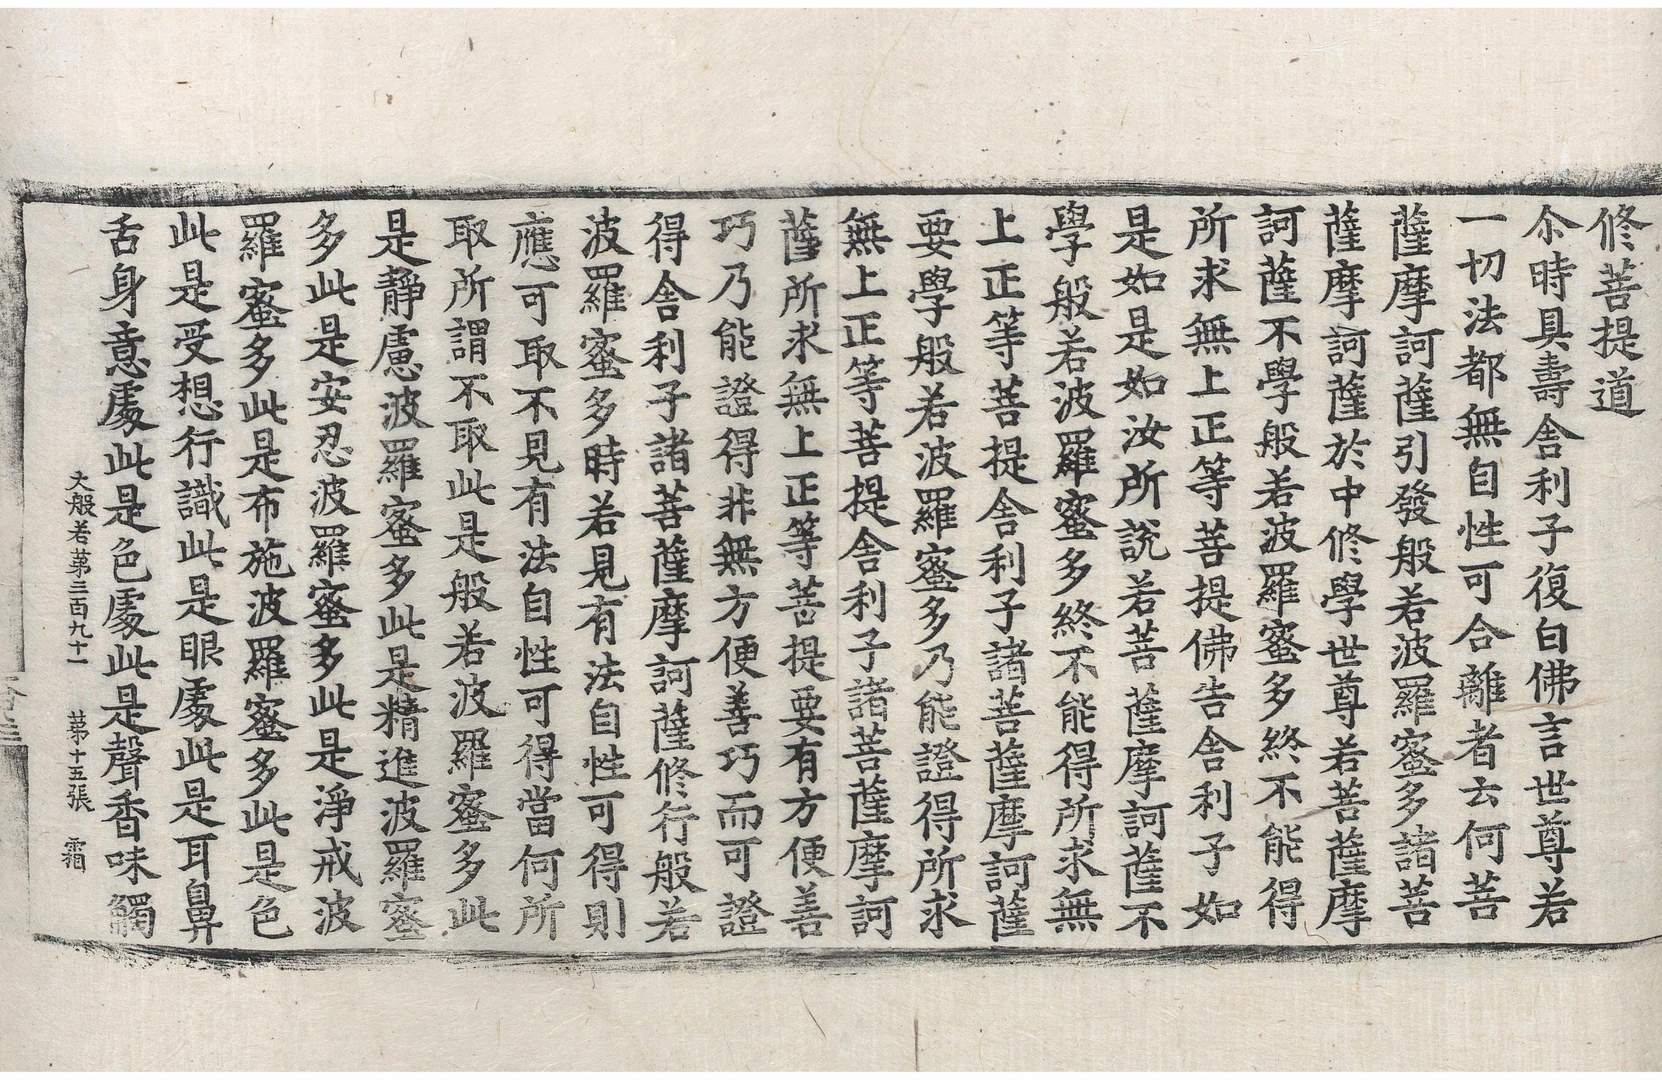 修菩提道
尒時具壽舍利子復白佛言世尊若
一切法都無自性可合離者云何菩
薩摩訶薩引發般若波羅蜜多諸菩
薩摩訶薩於中修學世尊若菩薩摩
訶薩不學般若波羅蜜多終不能得
所求無上正等菩提佛告舍利子如
是如是如汝所說若菩薩摩訶薩不
學般若波羅蜜多終不能得所求無
上正等菩提舍利子諸菩薩摩訶薩
要學般若波羅蜜多乃能證得所求
無上正等菩提舍利子諸菩薩摩訶
薩所求無上正等菩提要有方便善
巧乃能證得非無方便善巧而可證
得舍利子諸菩薩摩訶薩修行般若
波羅蜜多時若見有法自性可得則
應可取不見有法自性可得當何所
取所謂不取此是般若波羅蜜多此
是靜慮波羅蜜多此是精進波羅蜜
多此是安忍波羅蜜多此是淨戒波
羅蜜多此是布施波羅蜜多此是色
此是受想行識此是眼處此是耳鼻
舌身意處此是色處此是聲香味觸
大般若第三百九十一 第十五張 霜